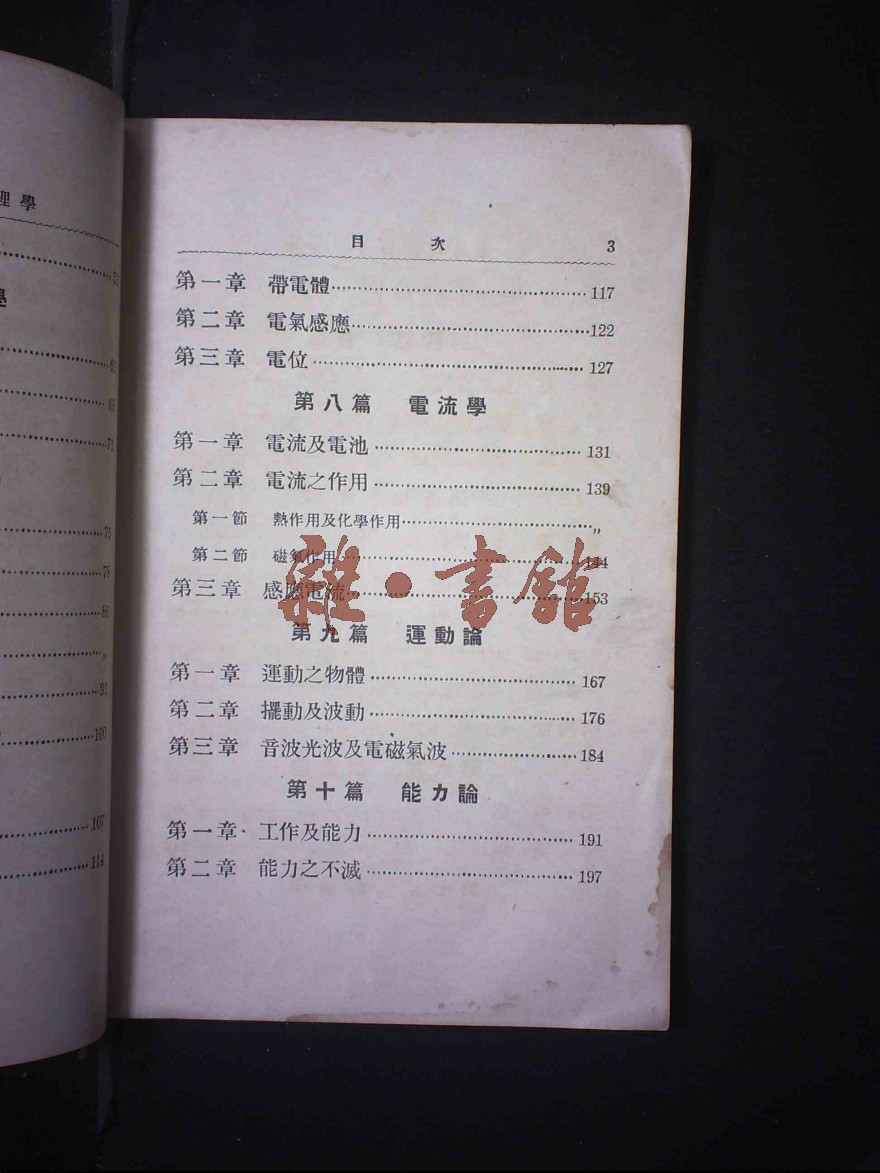 理學
53
學
61
68
71
75
78
86
„
91
100
107
114
目 次 3
第一章 帶電體 117
第二章 電氣感應 122
第三章 電位 127
第八篇 電流學
第一章 電流及電池 131
第二章 電流之作用 139
第一節 熱作用及化學作用 „
第二節 磁氣作用 144
第三章 感應電流 153
雜·書館
第九篇 運動論
第一章 運動之物體 167
第二章 擺動及波動 176
第三章 音波光波及電磁氣波 184
第十篇 能力論
第一章 工作及能力 191
第二章 能力之不滅 197